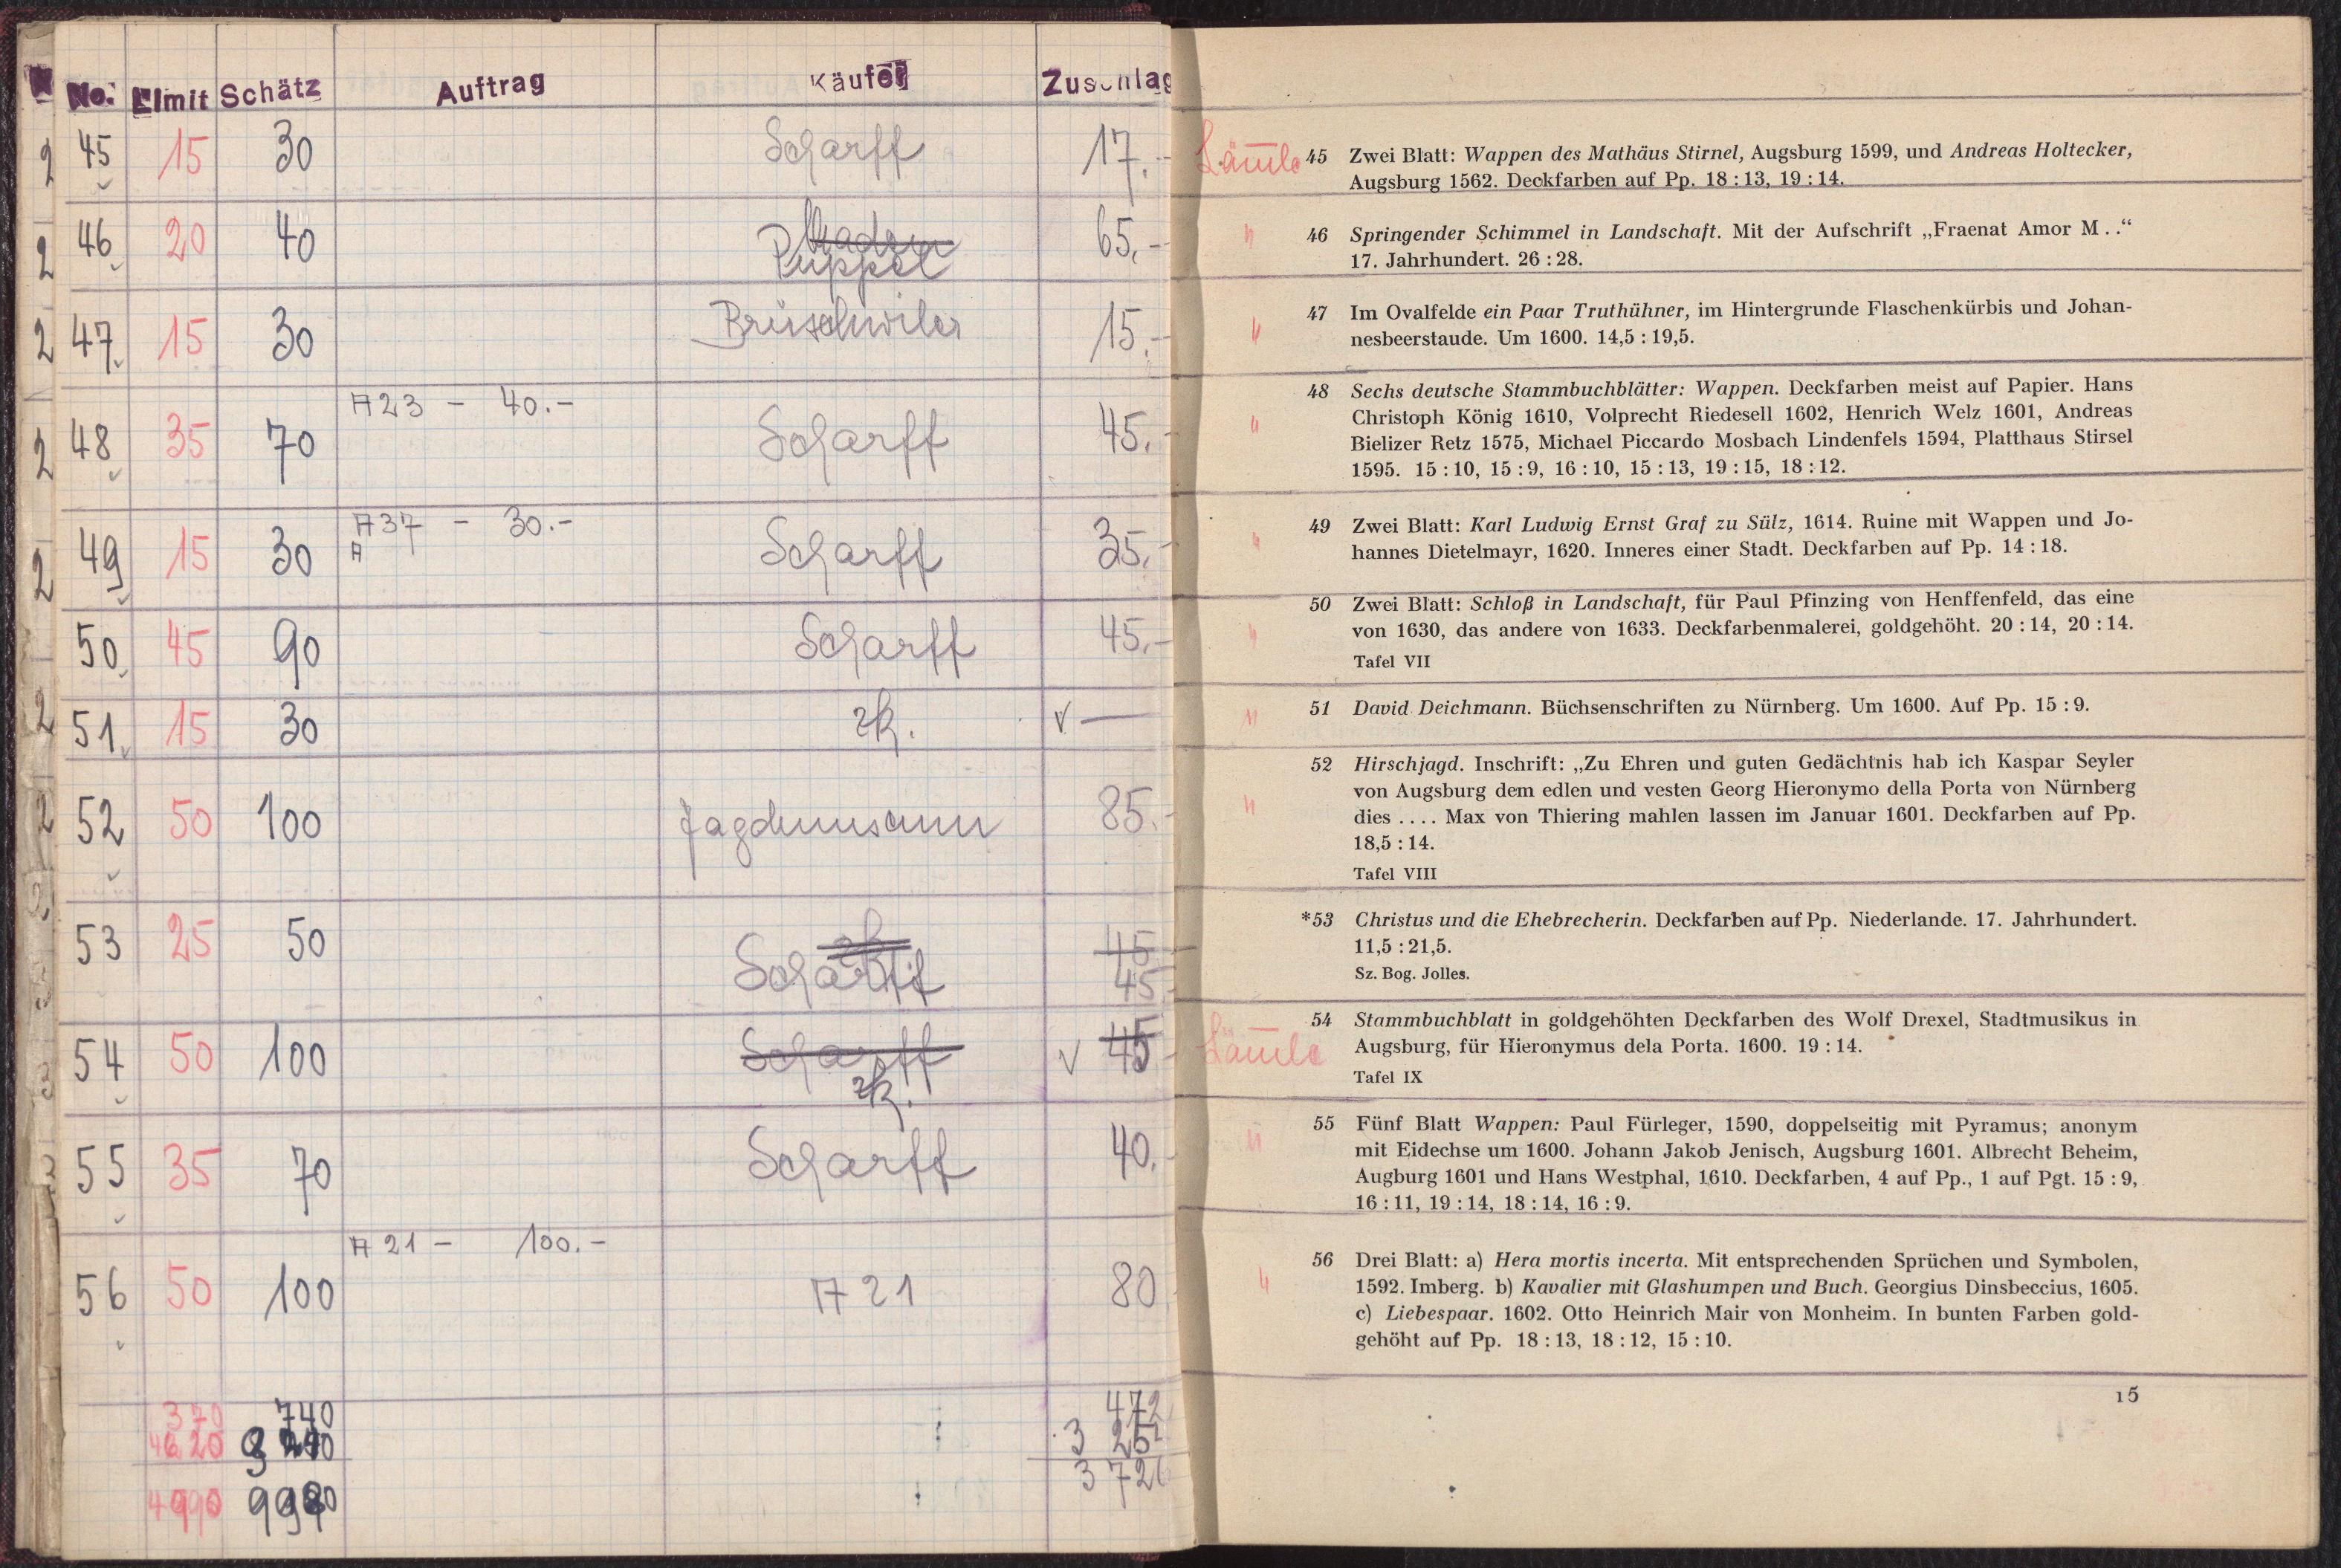 No. Limit Schätz Auftrag Käufer Zuschlag
2 45 15 30 Scharff 17.-
2 46 20 40 Puppel 65,-
2 47 15 30 Brüschwiler 15.-
A 23 - 40.-
2 48 35 70 Scharff 45.-
A 37 - 30.-
A
2 49 15 30 Scharff 35,-
50 45 90 Scharff 45.-
2 51 15 30 zk. √ —
2 52 50 100 Jagdmuseum 85.-
53 25 50 zk 45
Scharff 45.-
54 50 100 Scharff √ 45
zk.
55 35 70 Scharff 40.-
A 21 - 100.-
56 50 100 A 21 80
370 740 472
4620 3 25
4990 3 72
Lämle 45 Zwei Blatt: Wappen des Mathäus Stirnel, Augsburg 1599, und Andreas Holtecker,
Augsburg 1562. Deckfarben auf Pp. 18 : 13, 19 : 14.
" 46 Springender Schimmel in Landschaft. Mit der Aufschrift „Fraenat Amor M . .“
17. Jahrhundert. 26 : 28.
" 47 Im Ovalfelde ein Paar Truthühner, im Hintergrunde Flaschenkürbis und Johan-
nesbeerstaude. Um 1600. 14,5 : 19,5.
48 Sechs deutsche Stammbuchblätter: Wappen. Deckfarben meist auf Papier. Hans
" Christoph König 1610, Volprecht Riedesell 1602, Henrich Welz 1601, Andreas
Bielizer Retz 1575, Michael Piccardo Mosbach Lindenfels 1594, Platthaus Stirsel
1595. 15 : 10, 15 : 9, 16 : 10, 15 : 13, 19 : 15, 18 : 12.
" 49 Zwei Blatt: Karl Ludwig Ernst Graf zu Sülz, 1614. Ruine mit Wappen und Jo-
hannes Dietelmayr, 1620. Inneres einer Stadt. Deckfarben auf Pp. 14 : 18.
50 Zwei Blatt: Schloß in Landschaft, für Paul Pfinzing von Henffenfeld, das eine
" von 1630, das andere von 1633. Deckfarbenmalerei, goldgehöht. 20 : 14, 20 : 14.
Tafel VII
" 51 David Deichmann. Büchsenschriften zu Nürnberg. Um 1600. Auf Pp. 15 : 9.
52 Hirschjagd. Inschrift: „Zu Ehren und guten Gedächtnis hab ich Kaspar Seyler
" von Augsburg dem edlen und vesten Georg Hieronymo della Porta von Nürnberg
dies . . . . Max von Thiering mahlen lassen im Januar 1601. Deckfarben auf Pp.
18,5 : 14.
Tafel VIII
*53 Christus und die Ehebrecherin. Deckfarben auf Pp. Niederlande. 17. Jahrhundert.
11,5 : 21,5.
Sz. Bog. Jolles.
Lämle 54 Stammbuchblatt in goldgehöhten Deckfarben des Wolf Drexel, Stadtmusikus in
Augsburg, für Hieronymus dela Porta. 1600. 19 : 14.
Tafel IX
" 55 Fünf Blatt Wappen: Paul Fürleger, 1590, doppelseitig mit Pyramus; anonym
mit Eidechse um 1600. Johann Jakob Jenisch, Augsburg 1601. Albrecht Beheim,
Augburg 1601 und Hans Westphal, 1610. Deckfarben, 4 auf Pp., 1 auf Pgt. 15 : 9,
16 : 11, 19 : 14, 18 : 14, 16 : 9.
56 Drei Blatt: a) Hera mortis incerta. Mit entsprechenden Sprüchen und Symbolen,
" 1592. Imberg. b) Kavalier mit Glashumpen und Buch. Georgius Dinsbeccius, 1605.
c) Liebespaar. 1602. Otto Heinrich Mair von Monheim. In bunten Farben gold-
gehöht auf Pp. 18 : 13, 18 : 12, 15 : 10.
15